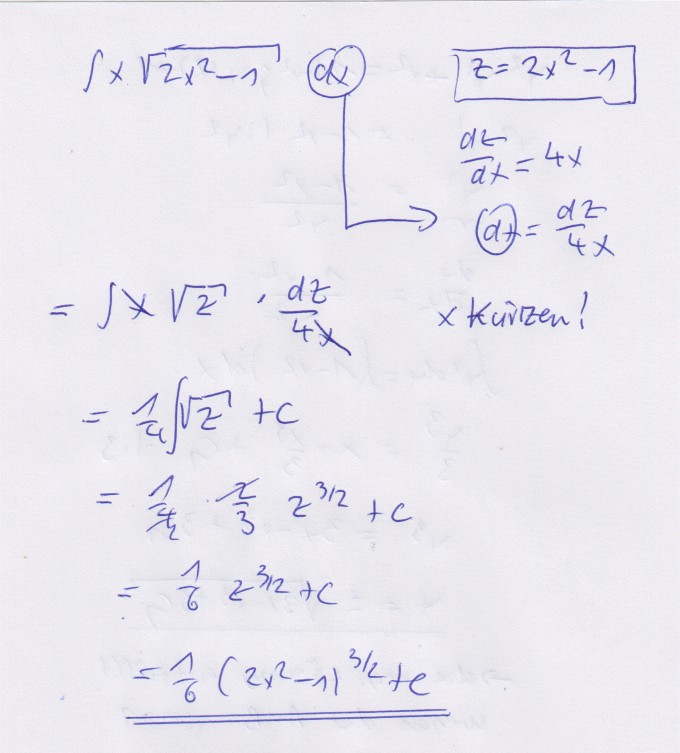 ∫ x √(2x²-1) dx    z = 2x²-1
dz/dx = 4x
dx = dz/4x
= ∫ x √z · dz/4x    x kürzen!
= 1/4 ∫ √z + c
= 1/4 · 2/3 z^3/2 + c
= 1/6 z^3/2 + c
= 1/6 (2x²-1)^3/2 + c